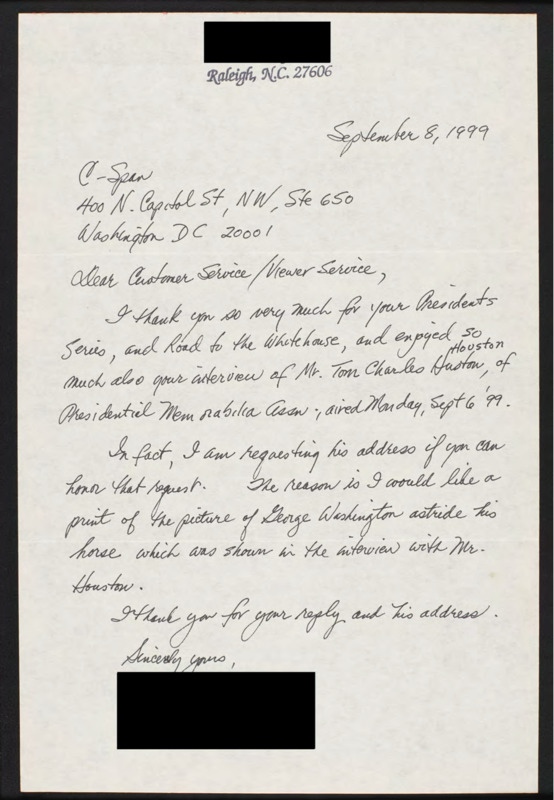 Raleigh, N.C. 27606
September 8, 1999
C-Span
400 N. Capitol St, NW, Ste 650
Washington DC 20001
Dear Customer Service/Viewer Service,
I thank you so very much for your Presidents
Series, and Road to the Whitehouse, and enjoyed so
Houston
much also your interview of Mr. Tom Charles Huston, of
Presidential Memorabilia Assn., aired Monday, Sept 6 '99.
In fact, I am requesting his address if you can
honor that request. The reason is I would like a
print of the picture of George Washington astride his
horse which was shown in the interview with Mr.
Houston.
I thank you for your reply and his address.
Sincerely yours,